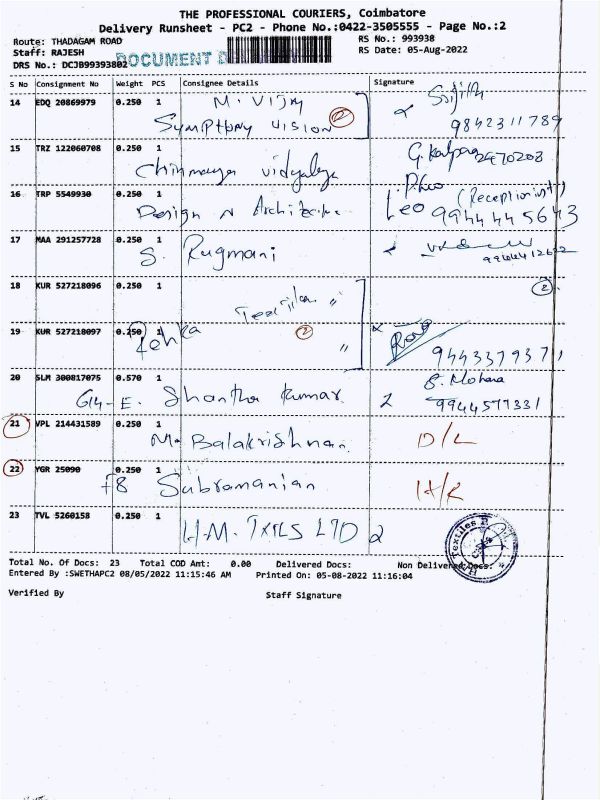 THE PROFESSIONAL COURIERS, Coimbatore
Delivery Runsheet - PC2 - Phone No.:0422-3505555 - Page No.:2
Route: THADAGAM ROAD
RS No.: 993938
Staff: RAJESH
RS Date: 05-Aug-2022
DRS No.: DCJB99393802
DOCUMENT
S No Consignment No Weight PCS Consignee Details Signature
14 EDQ 20869979 0.250 1 M. Vijay
Symphony Vision 2 9842311789
15 TRZ 122060708 0.250 1
Chinmaya Vidyalaya 2470208
16 TRP 5549930 0.250 1 (Receptionist)
Design N Leo 9944445643
17 MAA 291257728 0.250 1
S. Rugmani
18 KUR 527218096 0.250 1 2
19 KUR 527218097 0.250 1
2 9443379371
20 SLM 300817075 0.570 1
G14-E. Shantha Kumar 9944577331
21 VPL 214431589 0.250 1
M. Balakrishnan D/L
22 YGR 25090 0.250 1
F8 Subramanian
23 TVL 5260158 0.250 1
H.M. TXTLS LTD 2
Total No. Of Docs: 23 Total COD Amt: 0.00 Delivered Docs: Non Delivered Docs:
Entered By :SWETHAPC2 08/05/2022 11:15:46 AM Printed On: 05-08-2022 11:16:04
Verified By Staff Signature